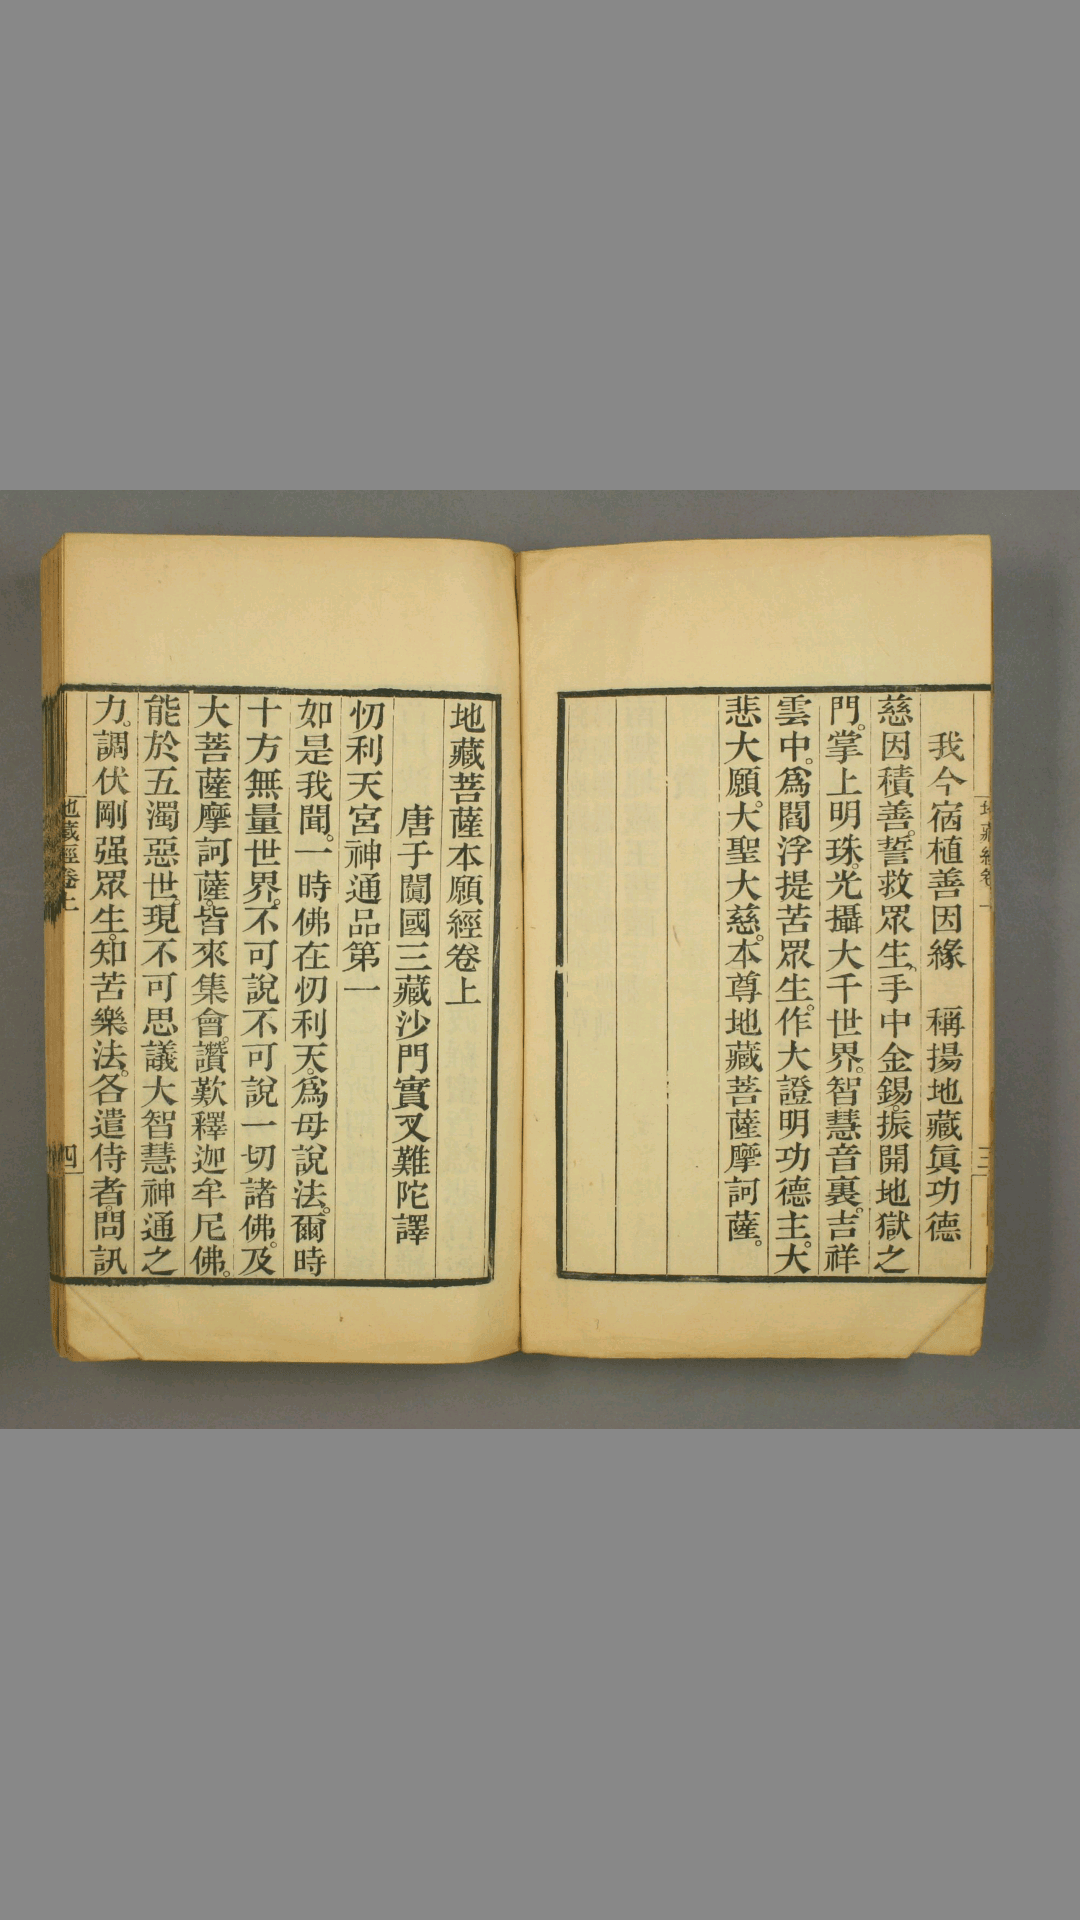 我今宿植善因緣　稱揚地藏眞功德
慈因積善。誓救眾生。手中金錫。振開地獄之
門。掌上明珠。光攝大千世界。智慧音裏。吉祥
雲中。爲閻浮提苦眾生。作大證明功德主。大
悲大願。大聖大慈。本尊地藏菩薩摩訶薩。
地藏菩薩本願經卷上
唐于闐國三藏沙門實叉難陀譯
忉利天宮神通品第一
如是我聞。一時佛在忉利天。爲母說法。爾時
十方無量世界。不可說不可說一切諸佛。及
大菩薩摩訶薩。皆來集會。讚歎釋迦牟尼佛。
能於五濁惡世。現不可思議大智慧神通之
力。調伏剛强眾生。知苦樂法。各遣侍者。問訊
地藏經卷上
四